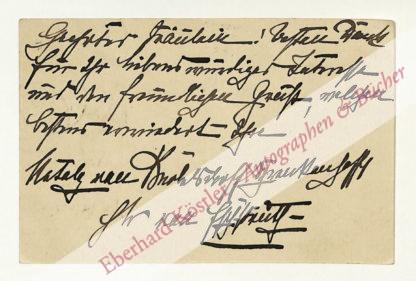 Geehrtes Fräulein! Besten Dank
für Ihr liebenswürdiges Interesse
und den freundlichen Gruß, welchen
bestens erwiedert Ihre
Nataly von
geb. von Eschstruth
Eberhard Köstler Autographen & Bücher